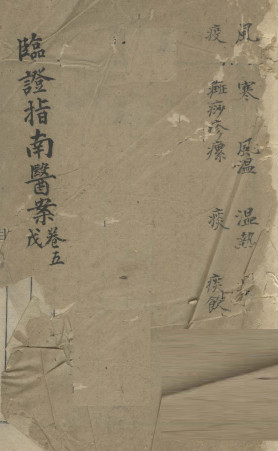 風 寒 風溫 溫熱
疫 癍痧疹瘰 痰 痰飲
臨證指南醫案
卷五
戊